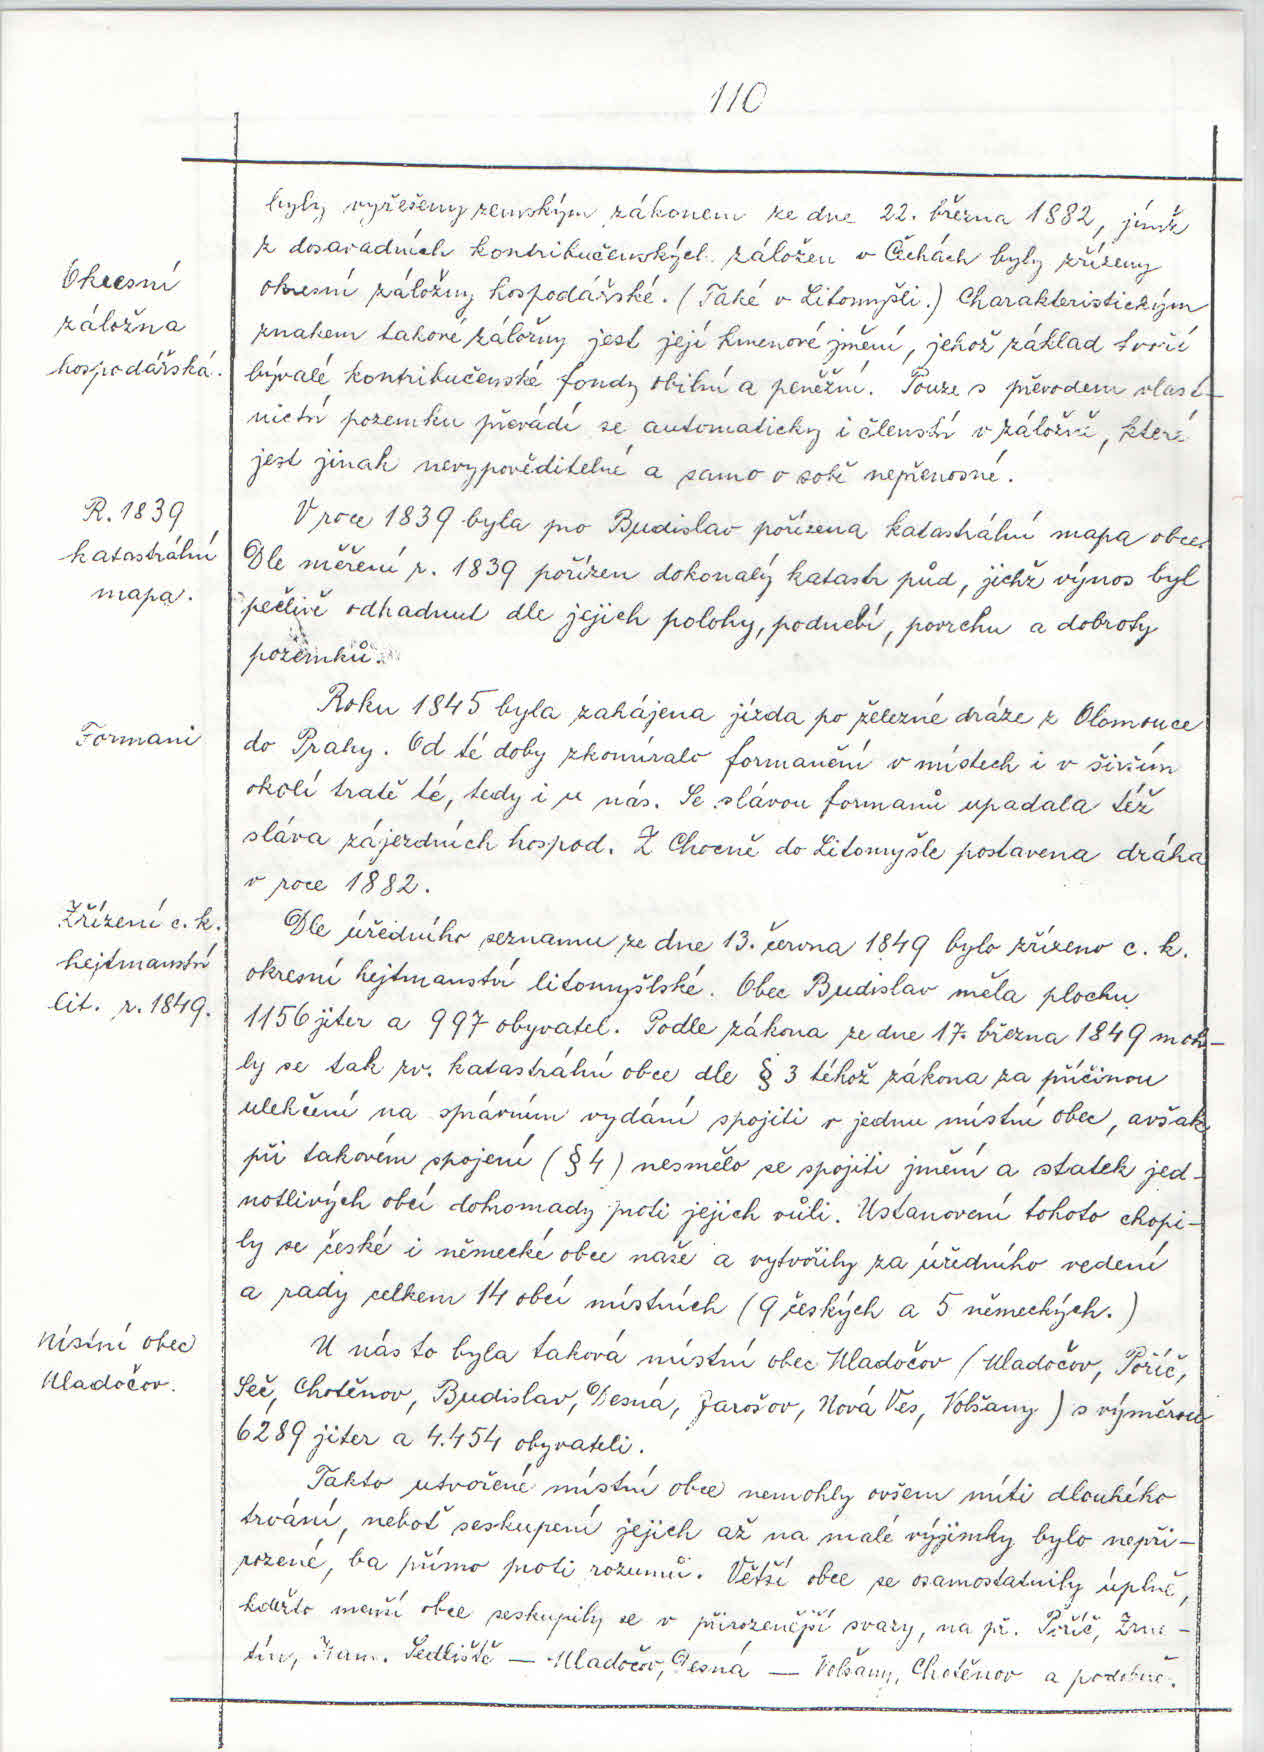 110
byly vyřešeny zemským zákonem ze dne 22. března 1882, jímž
z dosavadních kontribučenských záložen v Čechách byly zřízeny
Okresní
záložna
hospodářská.
okresní záložny hospodářské. (Také v Litomyšli.) Charakteristickým
znakem takové záložny jest její kmenové jmění, jehož základ tvoří
bývalé kontribučenské fondy obilní a peněžní. Pouze s převodem vlast-
nictví pozemku převádí se automaticky i členství v záložně, které
jest jinak nevypověditelné a samo o sobě nepřenosné.
R. 1839
katastrální
mapa.
V roce 1839 byla pro Budislav pořízena katastrální mapa obce.
Dle měření r. 1839 pořízen dokonalý katastr půd, jichž výnos byl
pečlivě odhadnut dle jejich polohy, podnebí, povrchu a dobroty
pozemků.
Formani
Roku 1845 byla zahájena jízda po železné dráze z Olomouce
do Prahy. Od té doby zkomíralo formanění v místech i v širším
okolí tratě té, tedy i u nás. Se slávou formanů upadala též
sláva zájezdních hospod. Z Chocně do Litomyšle postavena dráha
v roce 1882.
Zřízení c. k.
hejtmanství
Lit. r. 1849.
Dle úředního seznamu ze dne 13. června 1849 bylo zřízeno c. k.
okresní hejtmanství litomyšlské. Obec Budislav měla plochu
1156 jiter a 997 obyvatel. Podle zákona ze dne 17. března 1849 moh-
ly se tak zv. katastrální obce dle § 3 téhož zákona za příčinou
ulehčení na správním vydání spojiti v jednu místní obec, avšak
při takovém spojení (§ 4) nesmělo se spojiti jmění a statek jed-
notlivých obcí dohromady proti jejich vůli. Ustanovení tohoto chopi-
ly se české i německé obce naše a vytvořily za úředního vedení
a rady celkem 14 obcí místních (9 českých a 5 německých.)
Místní obec
Mladočov.
U nás to byla taková místní obec Mladočov (Mladočov, Poříč,
Seč, Chotěnov, Budislav, Desná, Jarošov, Nová Ves, Volšany) s výměrou
6289 jiter a 4.454 obyvateli.
Takto utvořené místní obce nemohly ovšem míti dlouhého
trvání, neboť seskupení jejich až na malé výjimky bylo nepři-
rozené, ba přímo proti rozumu. Větší obce se osamostatnily úplně,
kdežto menší obce seskupily se v přirozenější svazy, na př. Poříč, Zrne-
tín, Kam. Sedliště — Mladočov, Desná — Volšany, Chotěnov a podobně.